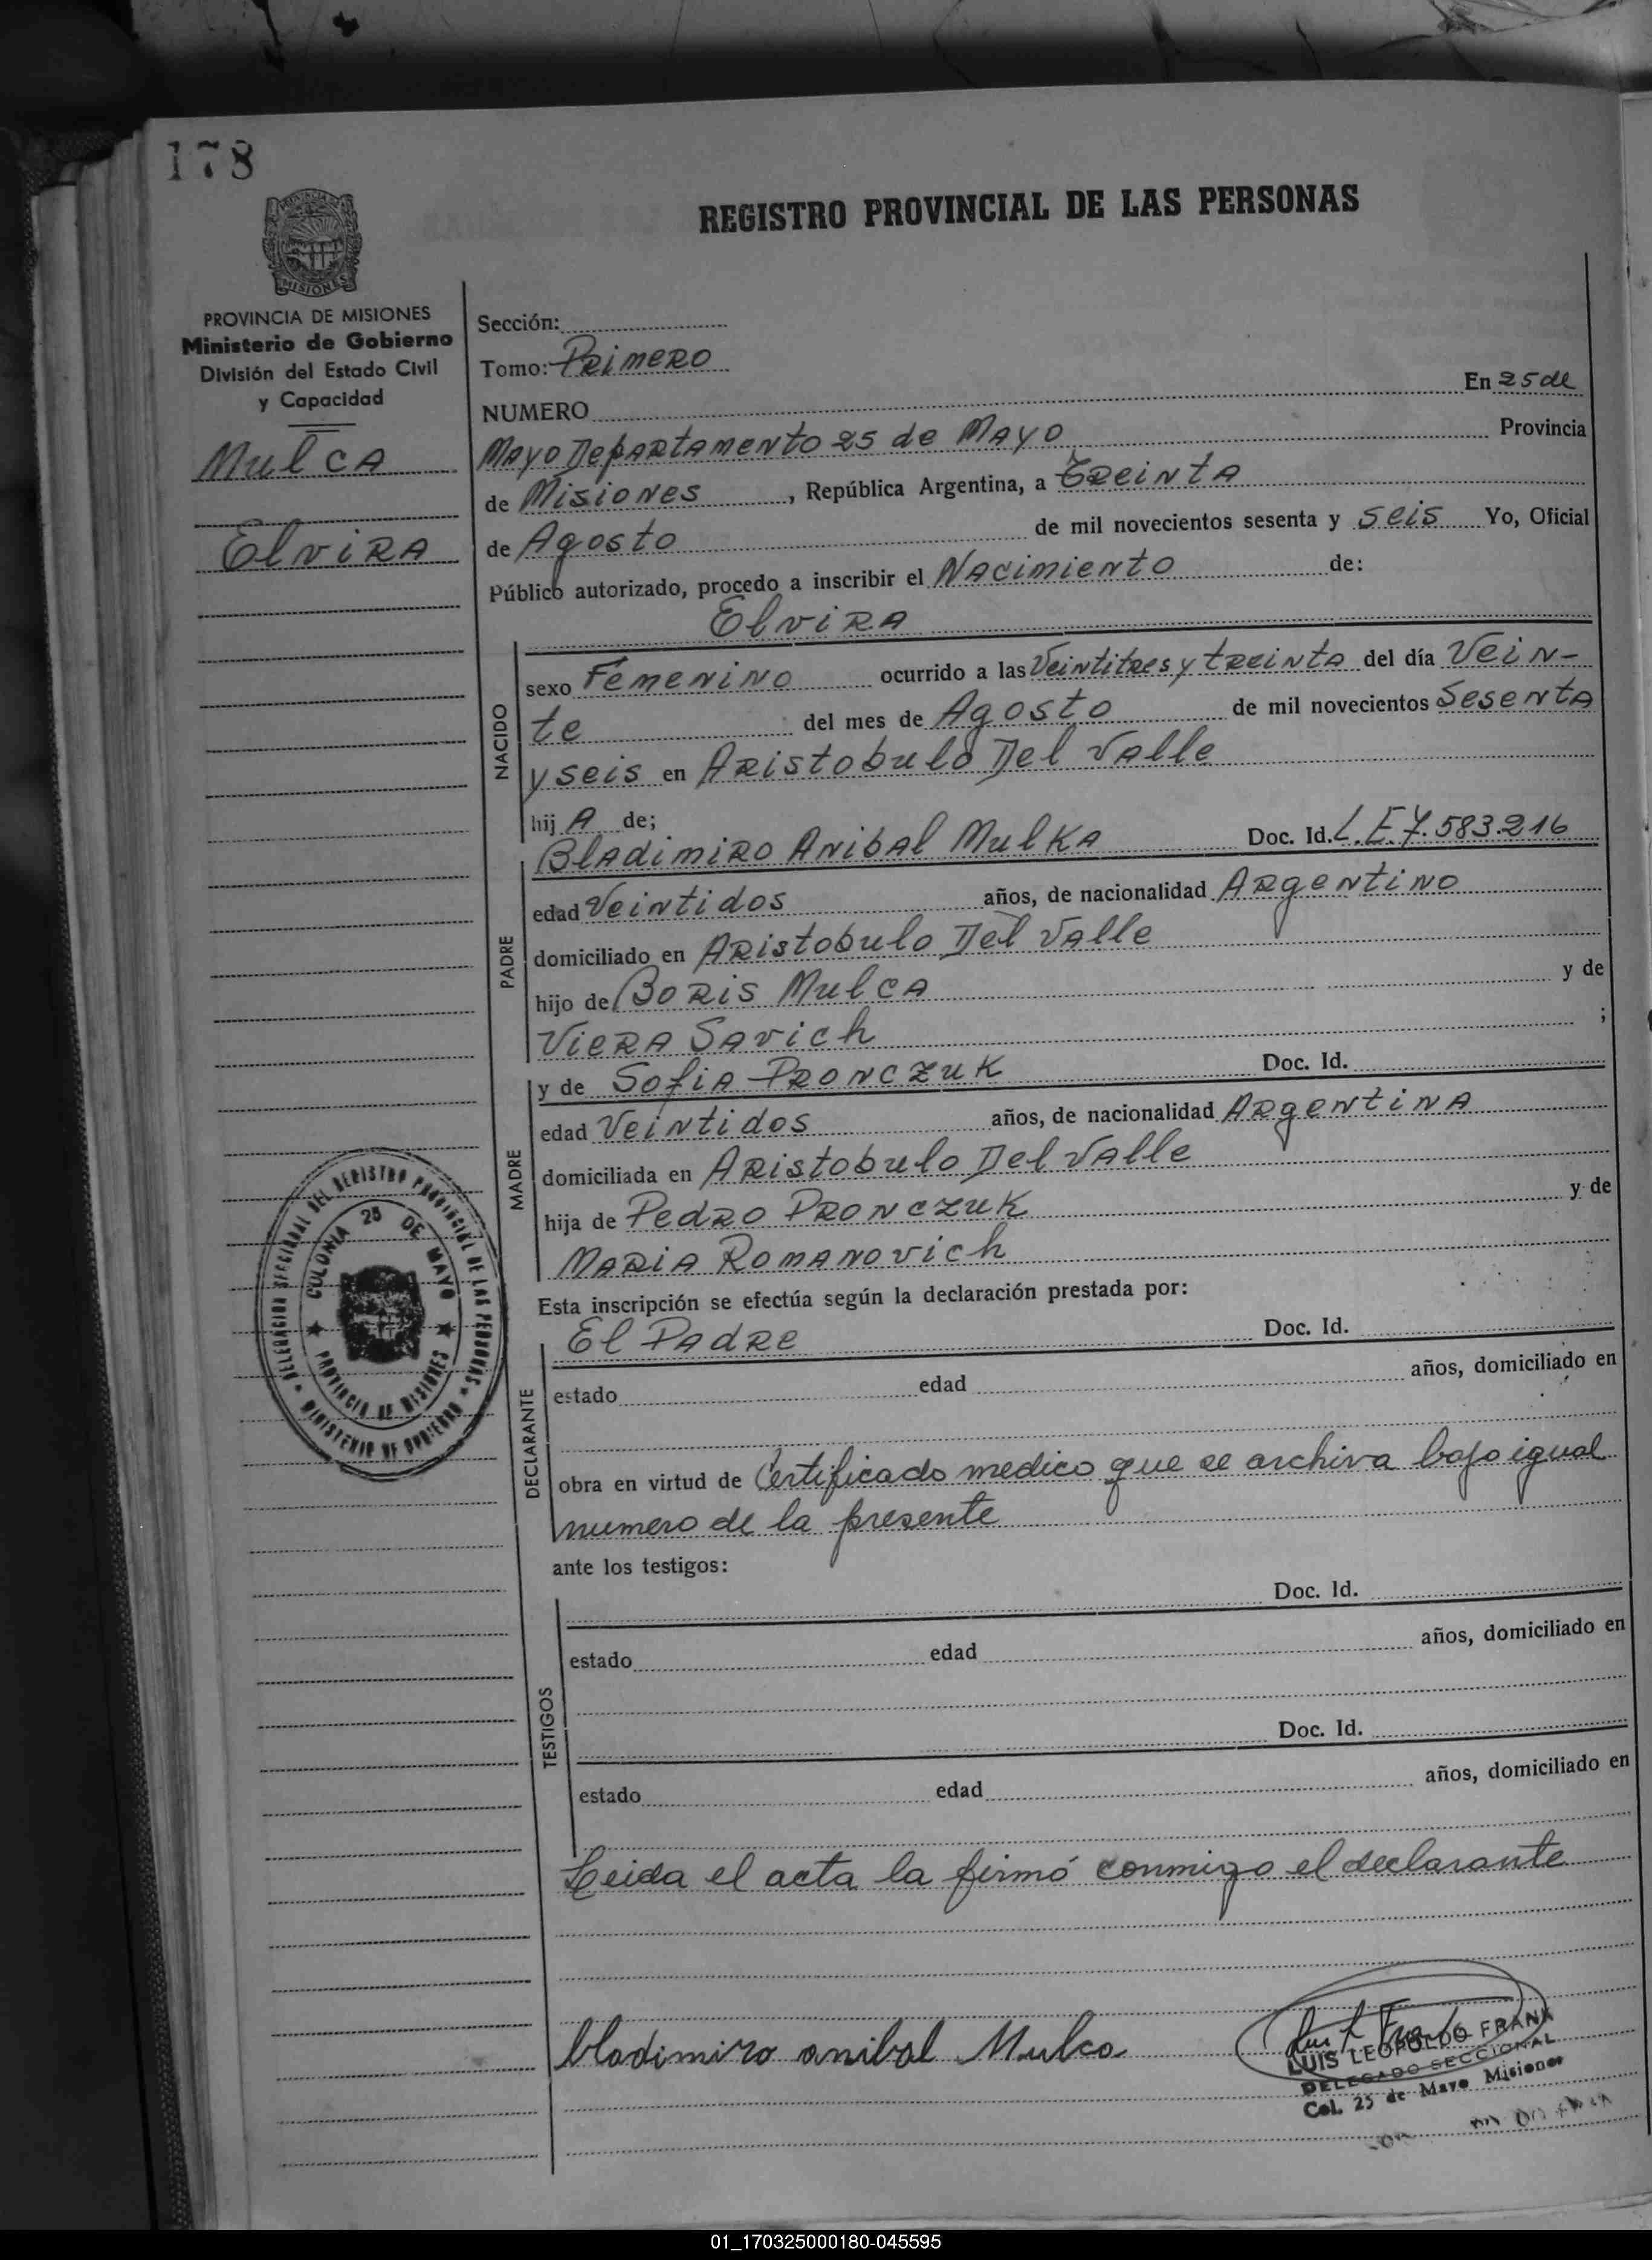 178
REGISTRO PROVINCIAL DE LAS PERSONAS
MISIONES
PROVINCIA DE MISIONES
Ministerio de Gobierno
División del Estado Civil
y Capacidad
Mulca
Elvira
Sección:
Tomo: Primero
NUMERO En 25 de
Mayo Departamento 25 de Mayo Provincia
de Misiones, República Argentina, a Treinta
de Agosto de mil novecientos sesenta y seis Yo, Oficial
Público autorizado, procedo a inscribir el Nacimiento de:
Elvira
NACIDO
sexo Femenino ocurrido a las Veintitres y treinta del día Vein-
te del mes de Agosto de mil novecientos Sesenta
y seis en Aristobulo Del Valle
hij A de;
PADRE
Bladimiro Anibal Mulka Doc. Id. L.E.7.583.216
edad Veintidos años, de nacionalidad Argentino
domiciliado en Aristobulo Del Valle
hijo de Boris Mulca y de
Viera Savich ;
MADRE
y de Sofia Pronczuk Doc. Id.
edad Veintidos años, de nacionalidad Argentina
domiciliada en Aristobulo Del Valle
hija de Pedro Pronczuk y de
Maria Romanovich
DELEGACION SECCIONAL DEL REGISTRO PROVINCIAL DE LAS PERSONAS
MINISTERIO DE GOBIERNO
COLONIA 25 DE MAYO
PROVINCIA DE MISIONES
Esta inscripción se efectúa según la declaración prestada por:
DECLARANTE
El Padre Doc. Id.
estado edad años, domiciliado en
obra en virtud de Certificado medico que se archiva bajo igual
numero de la presente
ante los testigos:
TESTIGOS
Doc. Id.
estado edad años, domiciliado en
Doc. Id.
estado edad años, domiciliado en
Leida el acta la firmó conmigo el declarante
bladimiro anibal Mulca
LUIS LEOPOLDO FRANK
DELEGADO SECCIONAL
Col. 25 de Mayo Misiones
01_170325000180-045595